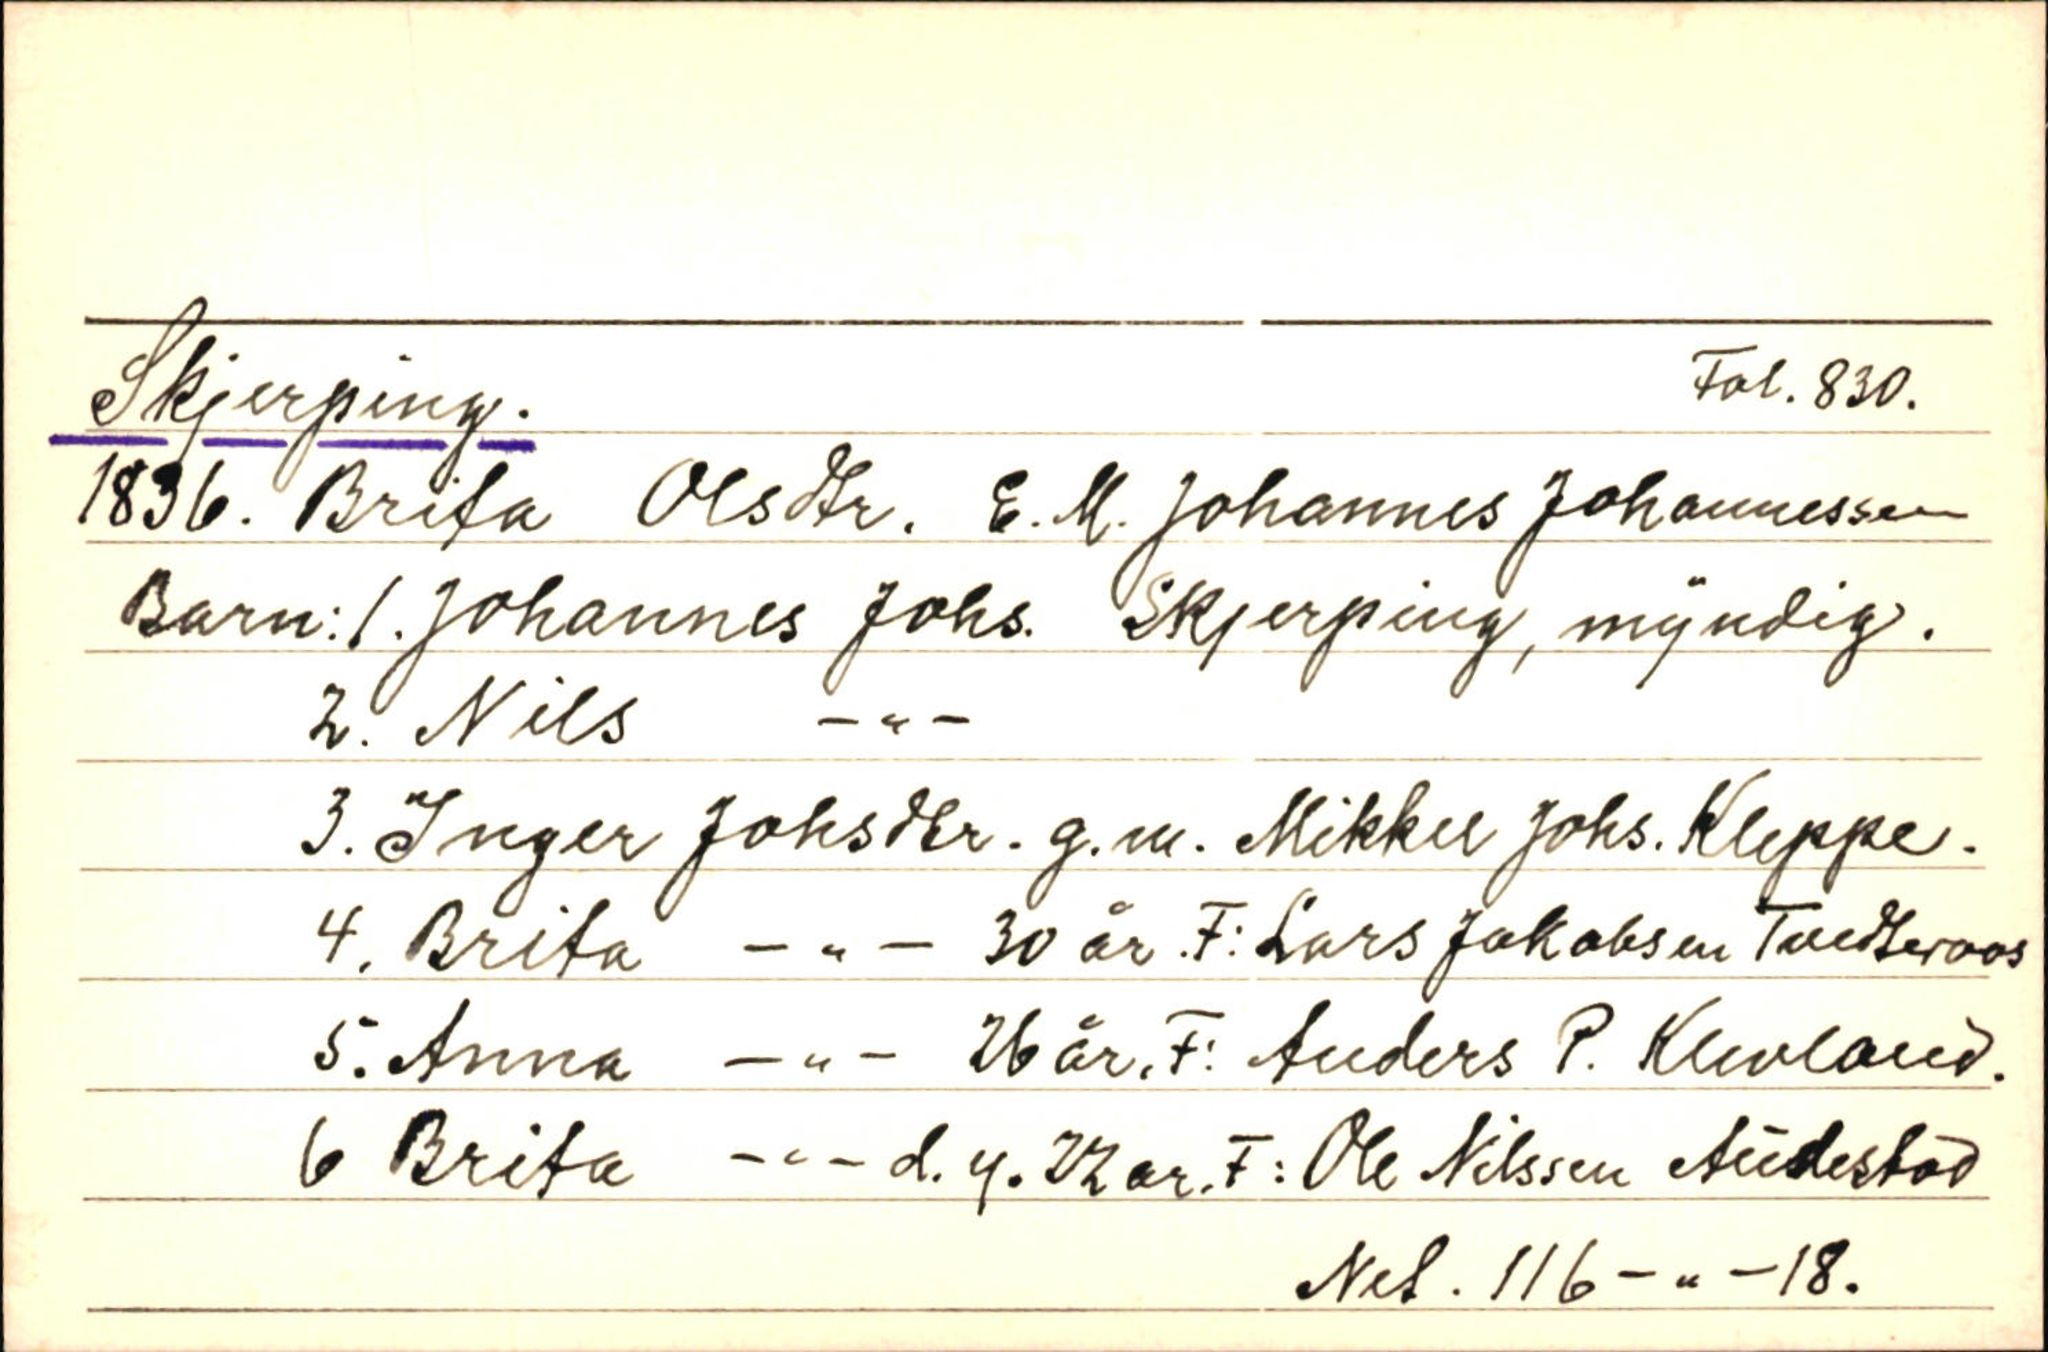 Skjerping. Fol. 830.
1836. Brita Olsdtr. E. M. Johannes Johannessen
Barn: 1. Johannes Johs. Skjerping, mÿndig.
2. Nils -"-
3. Inger Johsdtr. g. m. Mikkel Johs. Kleppe.
4. Brita -"- 30 år. F: Lars Jakobsen
5. Anna -"- 26 år. F: Anders P. Klevland.
6 Brita -"- d. y. 22 ar. F: Ole Nilssen
Net. 116 -"- 18.